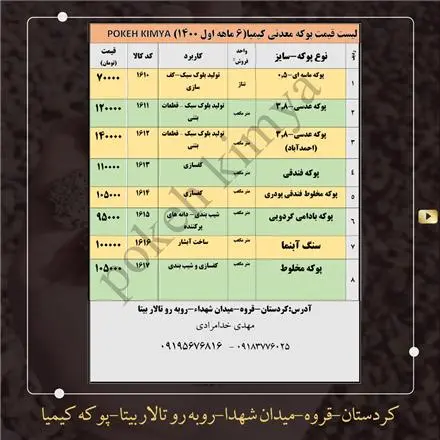 لیست قیمت پوکه معدنی کیمیا(۶ ماهه اول ۱۴۰۰) POKEH KIMYA
ردیف نوع پوکه-سایز واحد فروش: کاربرد کد کالا قیمت (تومان)
۱ پوکه ماسه ای-۰,۵ تناژ تولید بلوک سبک-کف سازی ۱۶۱۰ ۷۰۰۰۰
۲ پوکه عدسی-۳,۸ متر مکعب تولید بلوک سبک - قطعات بتنی ۱۶۱۱ ۱۲۰۰۰۰
۳ پوکه عدسی-۳,۸ (احمدآباد) متر مکعب تولید بلوک سبک - قطعات بتنی ۱۶۱۲ ۱۴۰۰۰۰
۴ پوکه فندقی متر مکعب کفسازی ۱۶۱۳ ۱۱۰۰۰۰
۵ پوکه مخلوط فندقی پودری متر مکعب کفسازی ۱۶۱۴ ۱۰۵۰۰۰
۶ پوکه بادامی گردویی متر مکعب شیب بندی- دانه های پرکننده ۱۶۱۵ ۹۵۰۰۰
۷ سنگ آبنما متر مکعب ساخت آبشار ۱۶۱۶ ۱۰۰۰۰۰
۸ پوکه مخلوط متر مکعب کفسازی و شیب بندی ۱۶۱۷ ۱۰۵۰۰۰
آدرس:کردستان-قروه-میدان شهداء-روبه رو تالار بیتا
مهدی خدامرادی
۰۹۱۸۳۷۷۶۰۲۵ - ۰۹۱۹۵۶۷۶۸۱۶
pokeh kimya
کردستان-قروه-میدان شهدا-روبه رو تالار بیتا-پوکه کیمیا